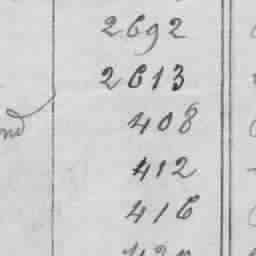 2692
2613
408
412
416